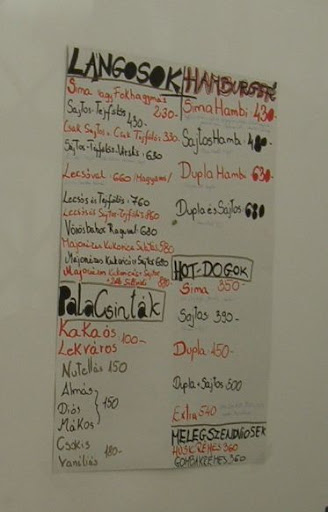 LANGOSOK
Sima vagy Fokhagymás
230-
Sajtos-Tejfölös
430-
Csak Sajtos v. Csak Tejfölös 330-
Sajtos-Tejfölös-Virslis 630
Lecsóval 660 /Hagymás/
Lecsós és Tejfölös 760
Lecsós és Sajtos-Tejfölös 860
Vörösboros Raguval 680
Majonézes Kukorica Salátás 580
Majonézes Kukorica és Sajtos 680
Majonézes Kukorica Sajtos
PalaCsinták
KaKaós
LeKváros 100-
Nutellás 150
Almás
Diós 150
MáKos
Csokis
Vaníliás 180-
HAMBURGER
Sima Hambi 430-
Sajtos Hamb. 480-
Dupla Hambi 630-
Dupla és Sajtos 680
HOT-DOGOK
Sima 350
Sajtos 390-
Dupla 450-
Dupla+Sajtos 500
Extra 540
MELEGSZENDVICSEK
HÚSKRÉMES 360
GOMBAKRÉMES 360